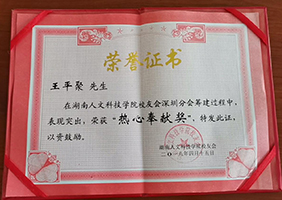 荣誉证书
王平聚 先生
在湖南人文科技学院校友会深圳分会筹建过程中,
表现突出,荣获“热心奉献奖”,特发此证,
以资鼓励。
湖南人文科技学院校友会
二〇一八年四月十五日